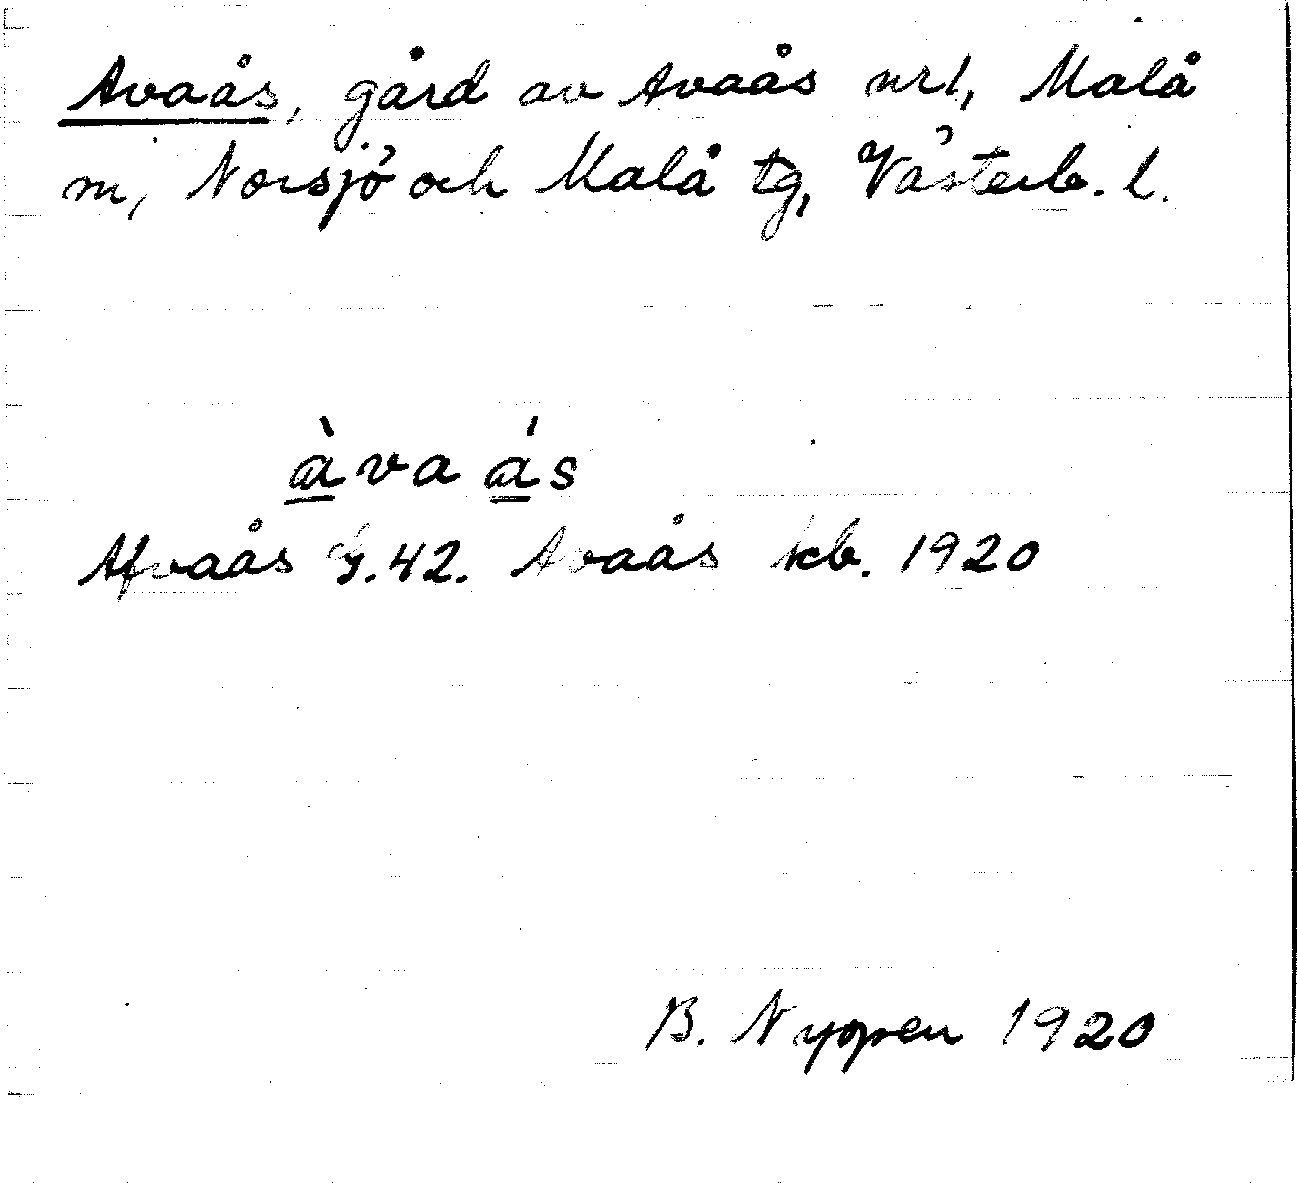 Avaås, gård av Avaås nr1, Malå
m, Norsjö och Malå tg, Västerb. l.
àva ás
Afvaås G.42. Avaås kb. 1920
B. Nyppen 1920